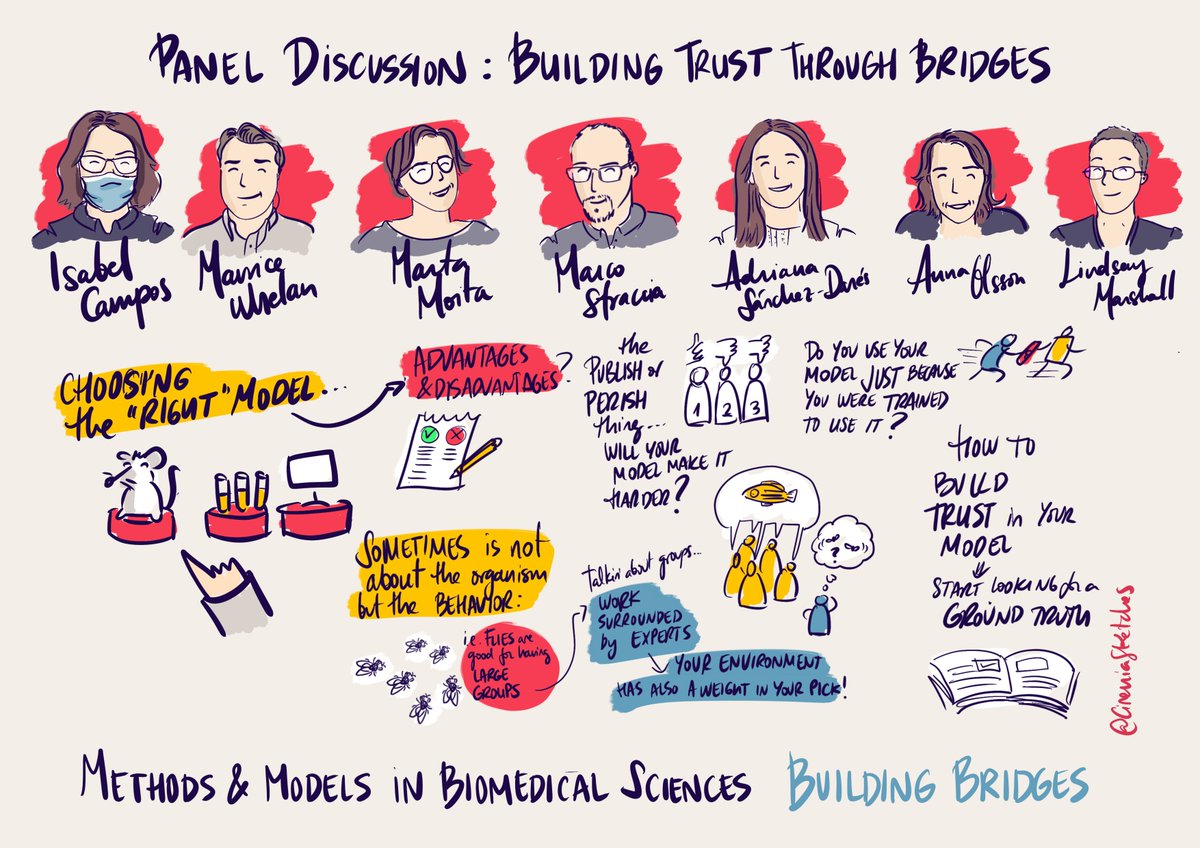 PANEL DISCUSSION: BUILDING TRUST THROUGH BRIDGES
Isabel
Campos
Maurice
Whelan
Marta
Moita
Marco
Straccia
Adriana
Sánchez-Danés
Anna Olsson
Lindsay
Marshall
CHOOSING
the "RIGHT" MODEL...
ADVANTAGES
& DISADVANTAGES?
the
PUBLISH or
PERISH
thing...
WILL YOUR
MODEL MAKE IT
HARDER?
1 2 3
DO YOU USE YOUR
MODEL JUST BECAUSE
YOU WERE TRAINED
TO USE IT?
HOW TO
BUILD
TRUST in YOUR
MODEL
START LOOKING for a
GROUND TRUTH
SOMETIMES is not
about the organism
but the BEHAVIOR:
i.e. FLIES are
good for having
LARGE
GROUPS
talkin' about groups...
WORK
SURROUNDED
by EXPERTS
?
YOUR ENVIRONMENT
HAS ALSO A WEIGHT IN YOUR PICK!
METHODS & MODELS IN BIOMEDICAL SCIENCES BUILDING BRIDGES